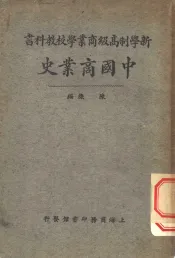 新學制高級商業學校教科書
中國商業史
陳燦編
上海商務印書館發行